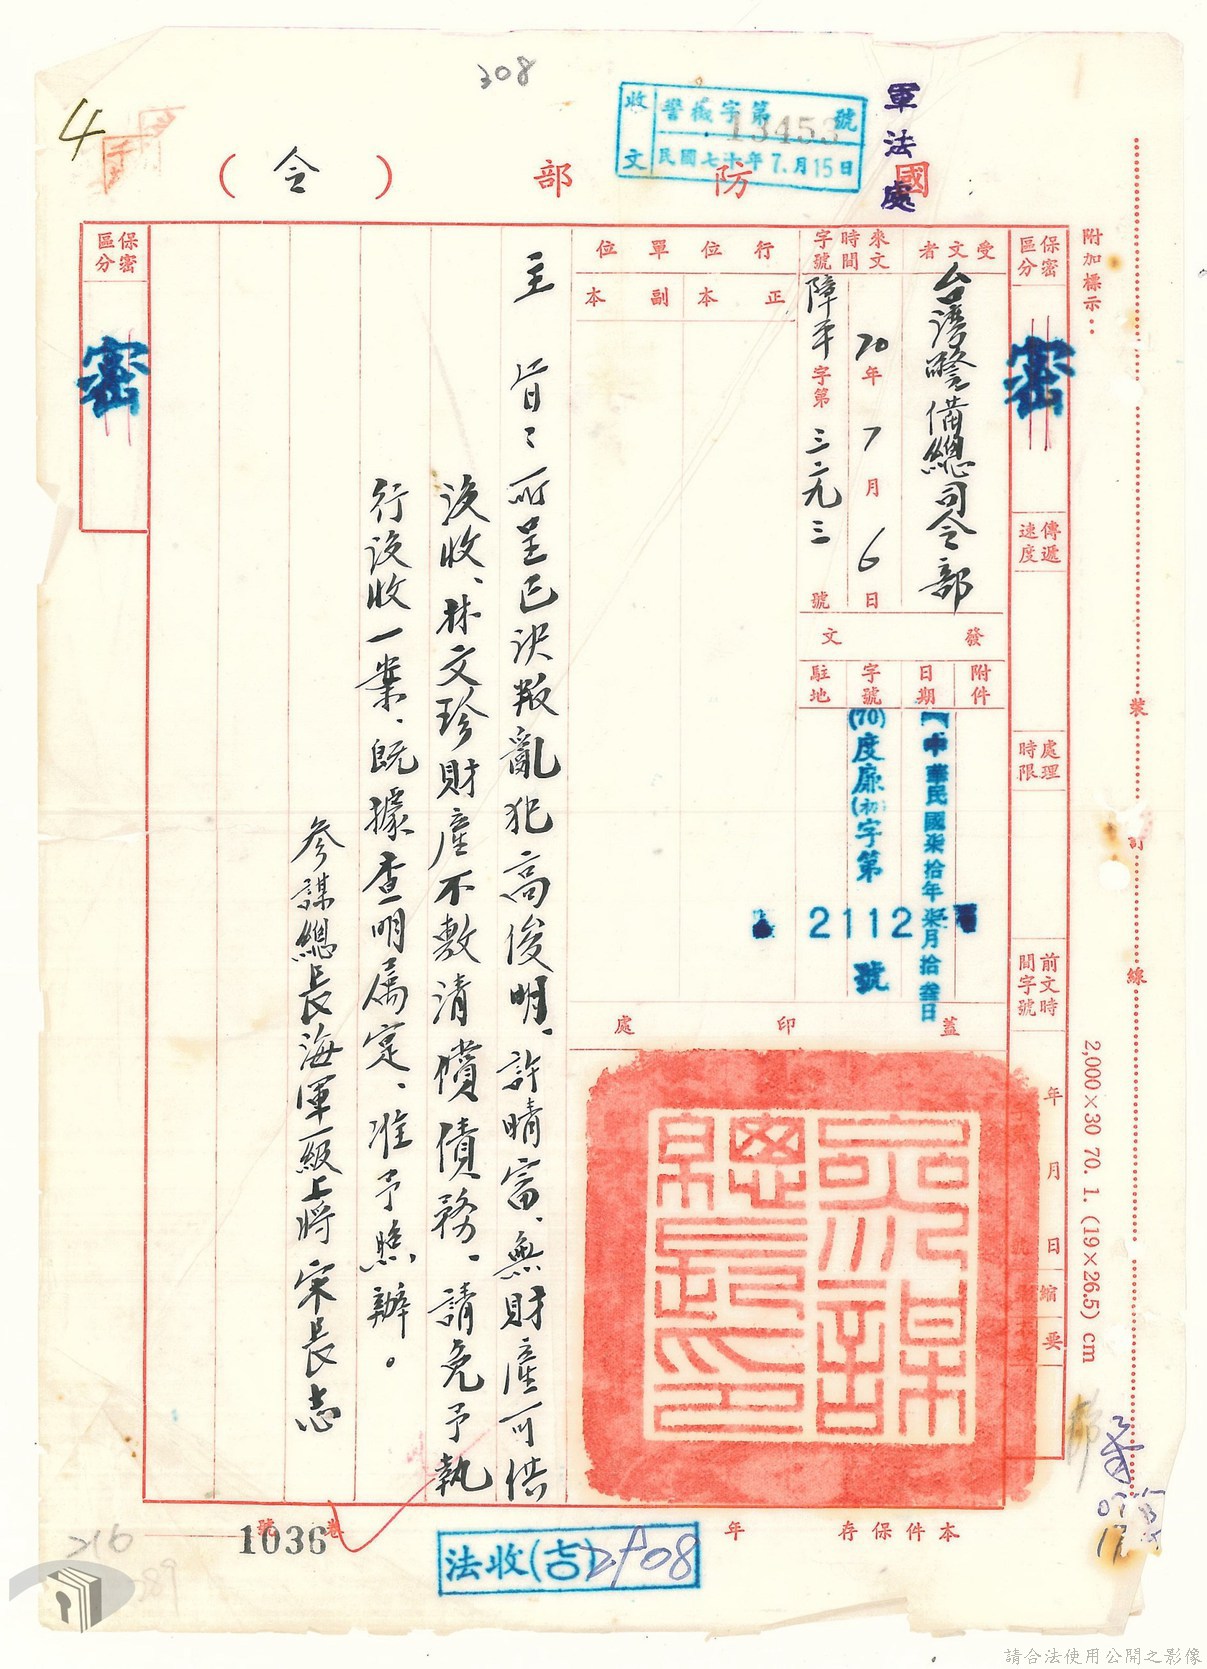 308
4
收文
警檢字第13453號
民國七十年7月15日
軍法處
國防部（令）
附加標示：
保密區分
密
傳遞速度
處理時限
前文時間字號
年月日縮要
受文者
台灣警備總司令部
來文時間字號
70年7月6日
障平字第三六九三號
發文
附件
日期
中華民國柒拾年柒月拾叁日
字號
(70)度廉(初)字第2112號
駐地
行位單位
正本
副本
蓋印處
參謀總長印
保密區分
密
主旨：所呈已決叛亂犯高俊明、許晴富、無財產可供
沒收、林文珍財產不敷清償債務、請免予執
行沒收一案、既據查明屬實、准予照辦。
參謀總長海軍一級上將宋長志
裝
訂
線
2,000×30 70. 1. (19×26.5) cm
本件保存年
卷號
1036
法收(吉)2508
216
請合法使用公開之影像